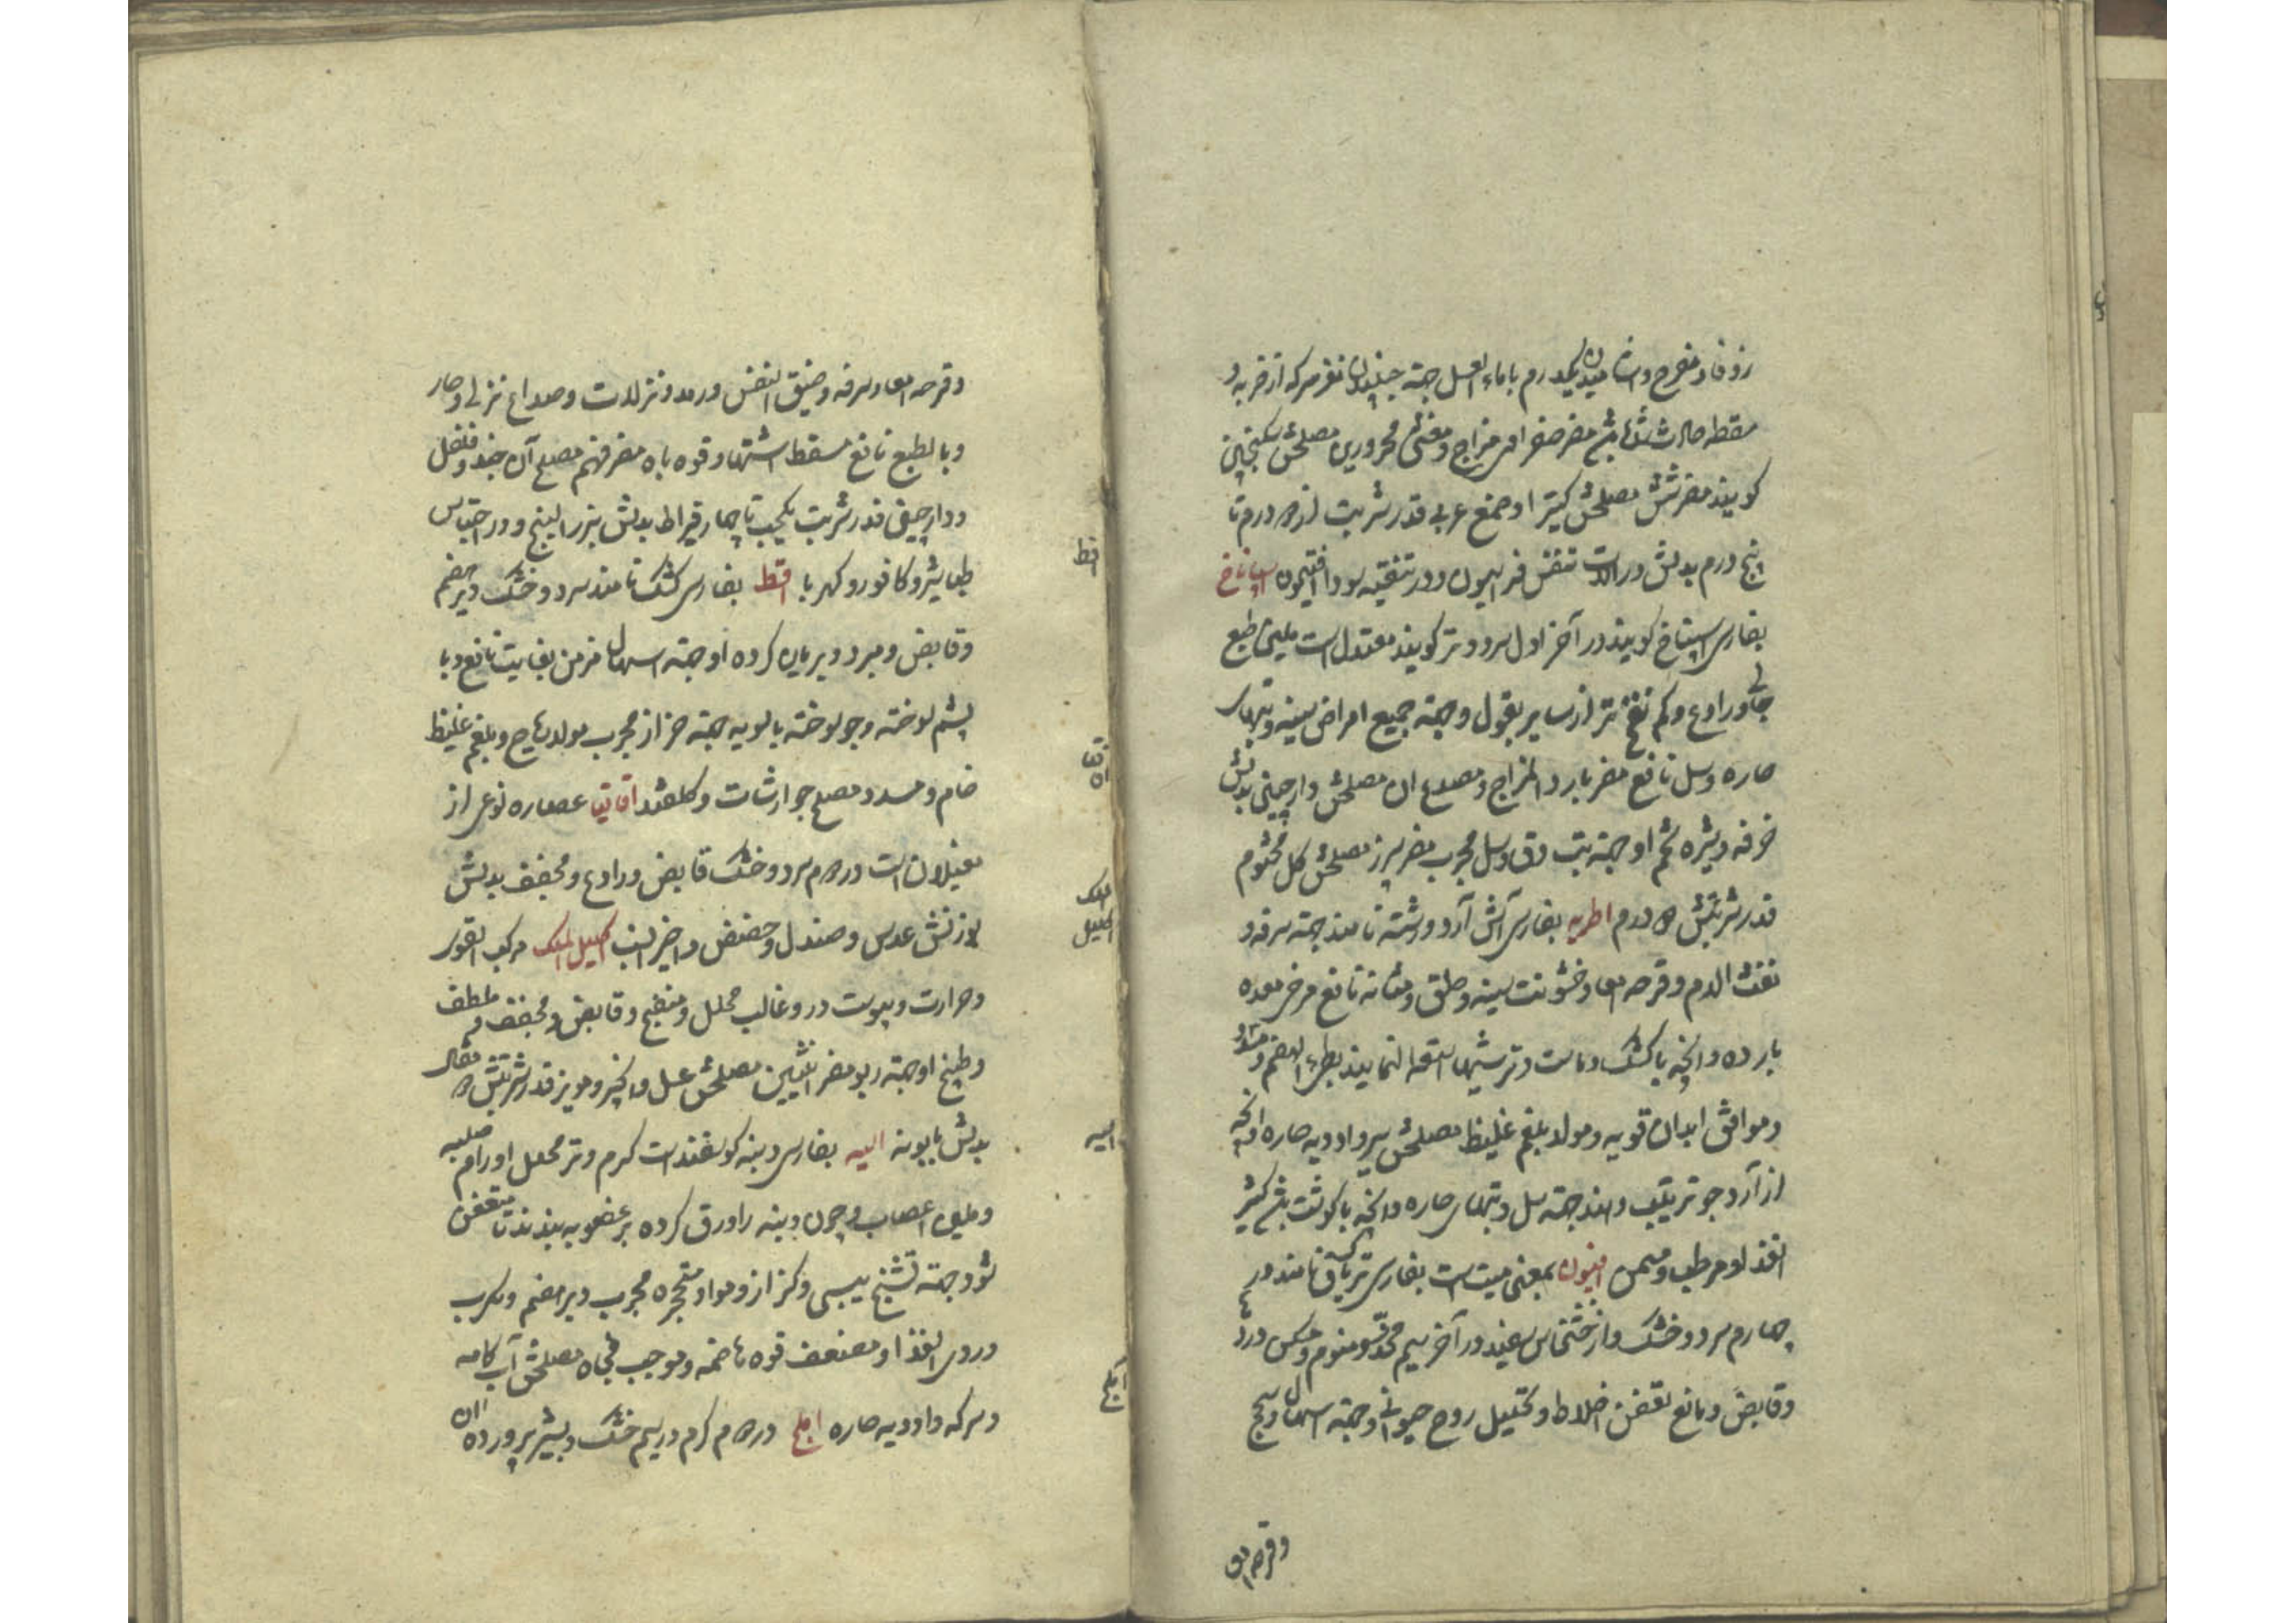 زوفا و مفرح و آشامیدن یکدرم با ماء العسل جهة جنبیدن مغز سر که از ضربه و
سقطه حادث شده باشد مضر صفراوی مزاج و مغثی محرورین مصلحش سکنجبین
کویند مضر شش مصلحش کتیرا و صمغ عربی قدر شربت از دو درم تا
پنج درم بدلش در آلات تنفس فراسیون و در تنقیه سودا افتیمون اسپاناخ
بفارسی اسپناخ کویند در آخر اول سرد و تر کویند معتدل است ملین طبع
جالی و رادع و کم نفخ تر از سایر بقول و جهة جمیع امراض سینه و تبهای
حاره و سل نافع مضر بارد المزاج و مصدع ان مصلحش دارچینی بدلش
خرفه و شیره تخم او جهة تب دق و سل مجرب مضر سپرز مصلحش کل مختوم
قدر شربتش دو درم اطریه بفارسی آش آرد و رشته نامند جهة سرفه و
نفث الدم و قرحه امعا و خشونت سینه و حلق و مثانه نافع مرخی معده
بارده و انچه با کشک و ماست و ترشیها استعمال نمایند بطیء الهضم و مسدد
و موافق ابدان قویه و مولد بلغم غلیظ مصلحش سیر و ادویه حاره و انچه
از آرد جو ترتیب دهند جهة سل و تبهای حاره و انچه با کوشت باشد کثیر
الغذا و مرطب و مسمن افیون بمعنی مسبت است بفارسی تریاک نامند در
چهارم سرد و خشک و از خشخاش سفید در آخر سیم مخدر و منوم و مسکن درد
و قابض و مانع تعفن اخلاط و تحلیل روح حیوانی و جهة اسهال و سحج
و قرحه امعا
و قرحه امعا و سرفه و ضیق النفس و رمد و نزلات و صداع نزلی و حار
و بالطبع نافع مسقط اشتها و قوه باه مضر فهم مصلح آن جند و فلفل
و دارچینی قدر شربت یکحبه تا چهار قیراط بدلش بزر البنج و در احتباس
طباشیر و کافور و کهربا اقط بفارسی کشک نامند سرد و خشک و دیر هضم
و قابض و مبرد و بریان کرده او جهة اسهال مزمن بغایت نافع و با
پشم سوخته و جو سوخته بالسویه جهة حزاز مجرب مولد ریاح و بلغم غلیظ
خام و مسدد مصلح جوارشات و کلقند اقاقیا عصاره نوعی از
مغیلان است در دوم سرد و خشک قابض و رادع و مجفف بدلش
بوزنش عدس و صندل و حضض و اخیر انسب اکلیل الملک مرکب القوی
و حرارت و یبوست در و غالب محلل و منضج و قابض و مجفف و ملطف
و طبیخ او جهة ربو مضر انثیین مصلحش عسل و انجیر و مویز قدر شربتش دو مثقال
بدلش بابونه الیه بفارسی دنبه کوسفند است کرم و تر محلل اورام صلبه
و ملین اعصاب و چون دنبه را ورق کرده بر عضو به بندند تا متعفن
شود جهة تشنج یبسی و کزاز و مواد متحجره مجرب دیر هضم و مکرب
و ردی الغذا و مضعف قوه هاضمه و موجب فجاه مصلحش آب کامه
و سرکه و ادویه حاره املج در دوم کرم در سیم خشک و بشیر پرورده ان
اقط
اقاقیا
اکلیل الملک
الیه
آملج